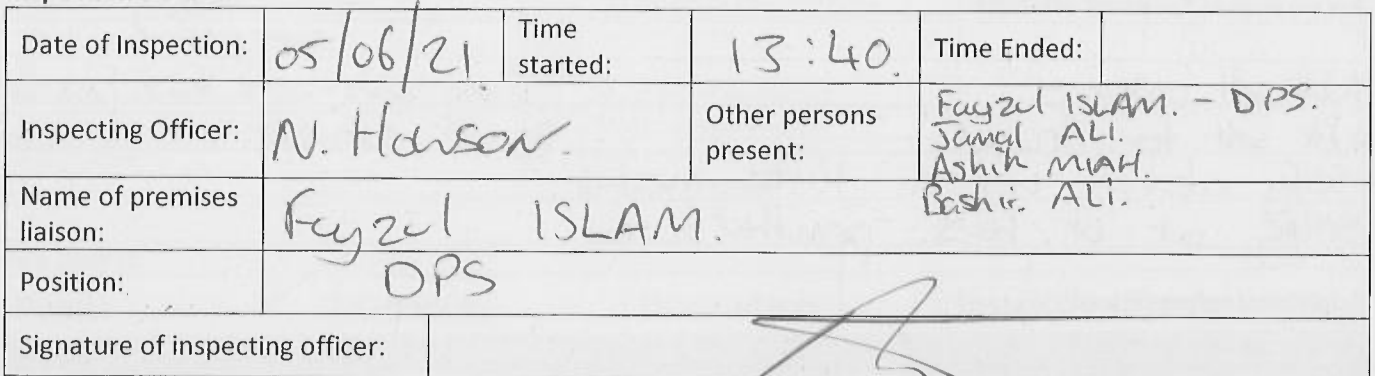 Date of Inspection: 05/06/21 Time started: 13:40. Time Ended:
Inspecting Officer: N. Howson. Other persons present: Fayzul ISLAM. - DPS.
Jamal ALI.
Ashik MIAH.
Bashir ALI.
Name of premises liaison: Fayzul ISLAM.
Position: DPS
Signature of inspecting officer: